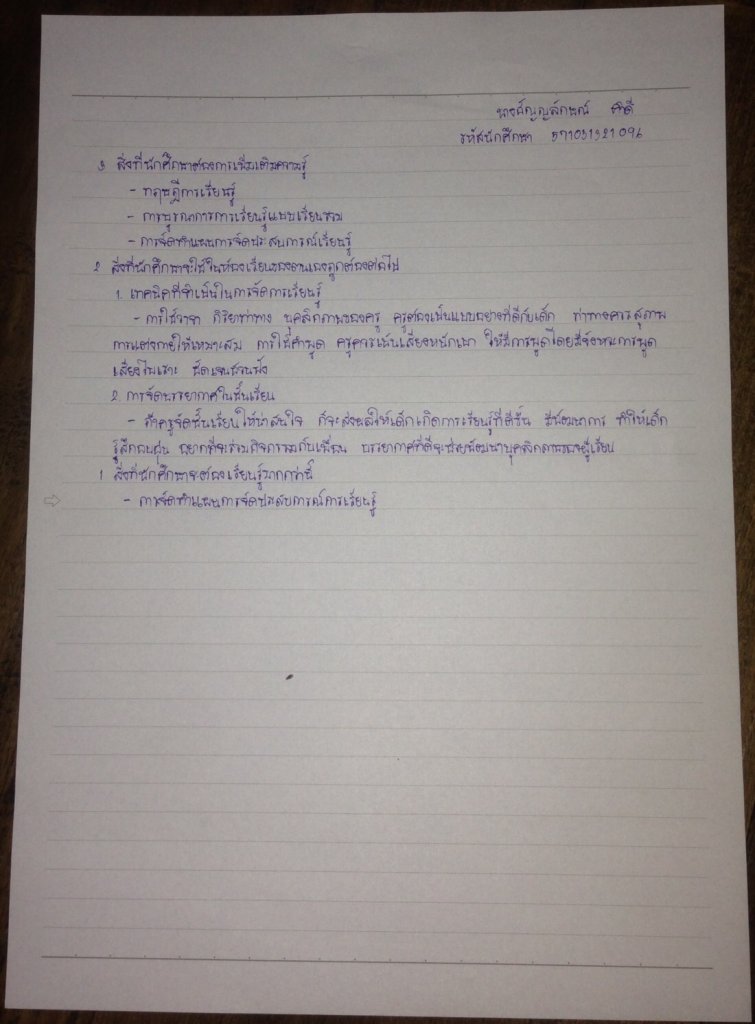 รหัสนักศึกษา 571031321096
3 สิ่งที่นักศึกษาต้องการเพิ่มเติมความรู้
- ทฤษฎีการเรียนรู้
- การบูรณาการการเรียนรู้แบบเรียนรวม
- การจัดทำแผนการจัดประสบการณ์เรียนรู้
2 สิ่งที่นักศึกษาจะใช้ในห้องเรียนของตนเองถูกต้องต่อไป
1. เทคนิคที่จำเป็นในการจัดการเรียนรู้
- การใช้วาจา กิริยาท่าทาง บุคลิกภาพของครู ครูต้องเป็นแบบอย่างที่ดีกับเด็ก ท่าทางควรสุภาพ
การแต่งกายให้เหมาะสม การใช้คำพูด ครูควรเน้นเสียงหนักเบา ให้มีการพูดโดยมีจังหวะการพูด
เสียงไพเราะ ชัดเจนชวนฟัง
2. การจัดบรรยากาศในชั้นเรียน
- ถ้าครูจัดชั้นเรียนให้น่าสนใจ ก็จะส่งผลให้เด็กเกิดการเรียนรู้ที่ดีขึ้น มีพัฒนาการ ทำให้เด็ก
รู้สึกอบอุ่น อยากที่จะร่วมกิจกรรมกับเพื่อน บรรยากาศที่ดีจะช่วยพัฒนาบุคลิกภาพของผู้เรียน
1 สิ่งที่นักศึกษาจะต้องเรียนรู้มากกว่านี้
- การจัดทำแผนการจัดประสบการณ์การเรียนรู้